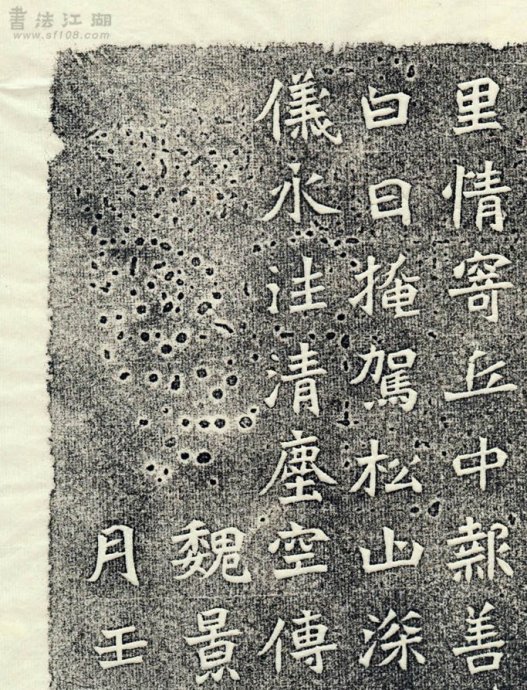 書法江湖
www.sf108.com
里情寄丘中報善
白日掩駕松山深
儀永注清塵空傳
魏景
月壬